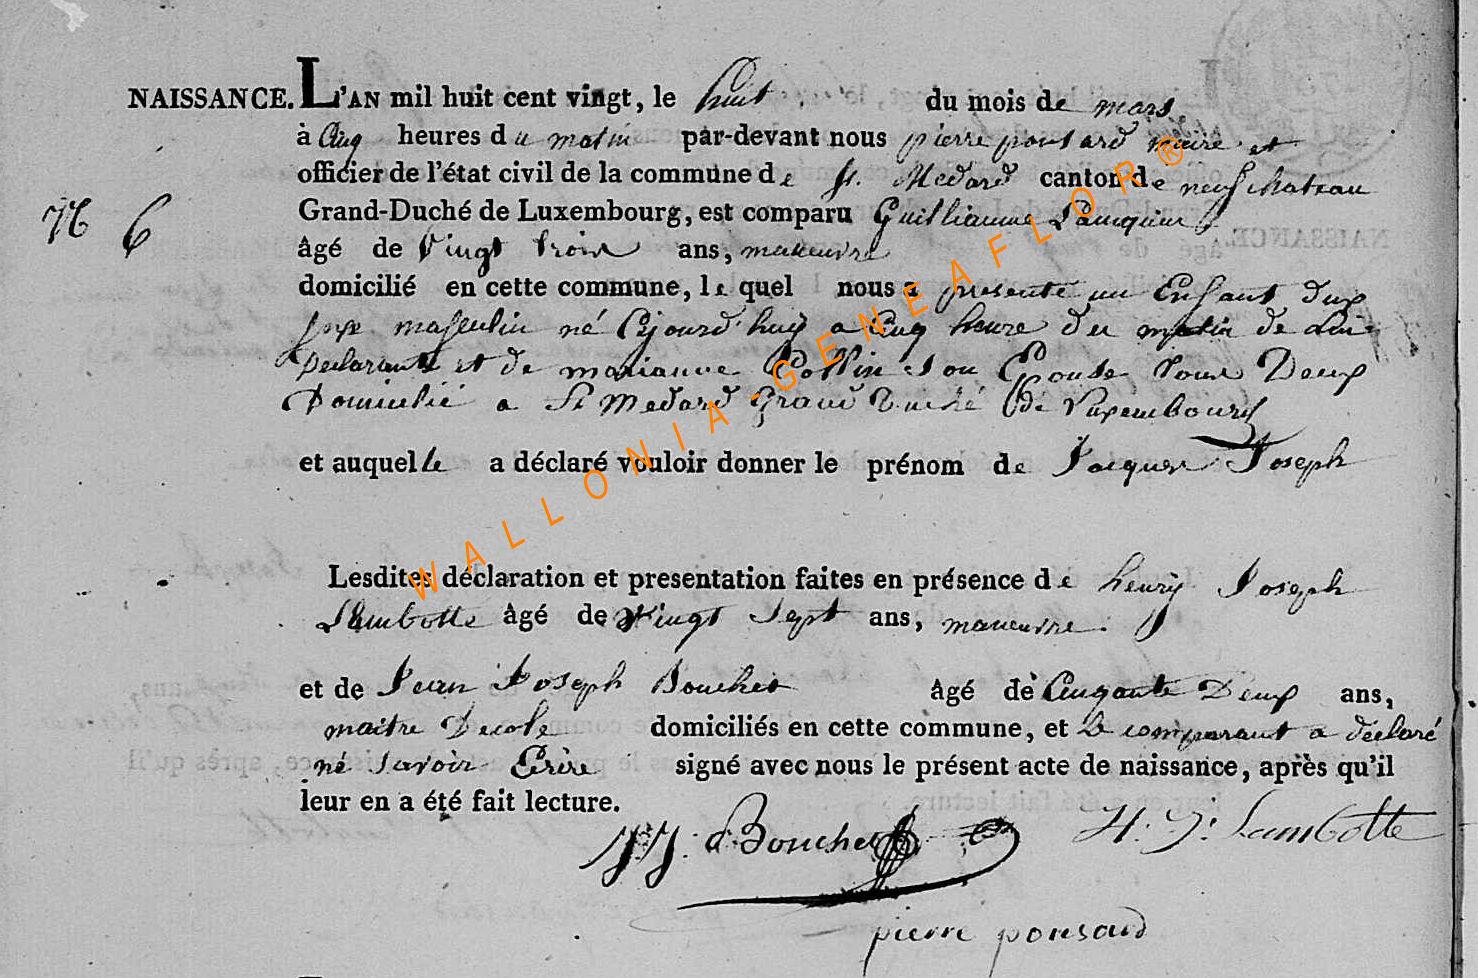 NAISSANCE. L'AN mil huit cent vingt, le huit du mois de mars
à Cinq heures du matin par-devant nous pierre ponsard maire et
officier de l'état civil de la commune de st. Medard canton de neufchateau
N 6 Grand-Duché de Luxembourg, est comparu Guillianme
âgé de vingt trois ans, maneuvre
domicilié en cette commune, le quel nous a presenté un Enfant dux
sexe masculin né Cejourd'huy a Cinq heure du matin de Luy
Declarant et de marianne Collin son Epouse tous Deux
Domicilié a St Medard Grand Duché de Luxembourg
et auquelle a déclaré vouloir donner le prénom de Jacques Joseph
Lesdites déclaration et presentation faites en présence de henry Joseph
Lambotte âgé de vingt Sept ans, maneuvre.
et de Jean Joseph Bouchet âgé de Cinqante Deux ans,
maitre Decole domiciliés en cette commune, et le comparant a déclaré
né savoir Ecrire signé avec nous le présent acte de naissance, après qu'il
leur en a été fait lecture.
J:J. Bouchet H. J. Lambotte
pierre ponsard
WALLONIA-GENEAFLOR®